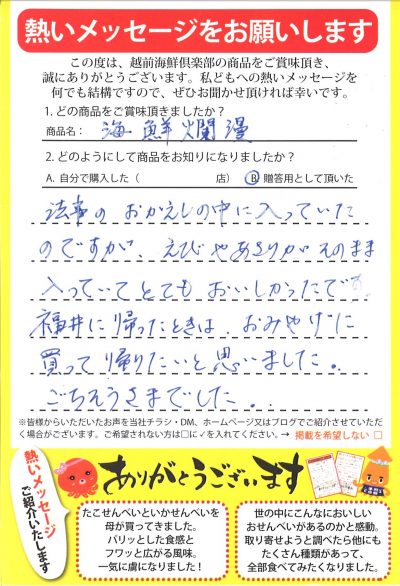 熱いメッセージをお願いします
この度は、越前海鮮倶楽部の商品をご賞味頂き、
誠にありがとうございます。私どもへの熱いメッセージを
何でも結構ですので、ぜひお聞かせ頂ければ幸いです。
1. どの商品をご賞味頂きましたか？
商品名： 海鮮爛漫
2. どのようにして商品をお知りになりましたか？
A. 自分で購入した（ 店） B 贈答用として頂いた
法事の おかえしの中に入っていた
のですが、えびやあさりがそのまま
入っていてとてもおいしかったです。
福井に帰ったときは、おみやげに
買って帰りたいと思いました。
ごちそうさまでした。
※皆様からいただいたお声を当社チラシ・DM、ホームページ又はブログでご紹介させていただ
く場合がございます。ご希望されない方は□に✓を入れてください。→ 掲載を希望しない □
熱いメッセージ
ご紹介いたします
ありがとうございます
たこせんべいといかせんべいを
母が買ってきました。
パリッとした食感と
フワッと広がる風味。
一気に虜になりました！
世の中にこんなにおいしい
おせんべいがあるのかと感動。
取り寄せようと調べたら他にも
たくさん種類があって、
全部食べてみたくなりました。